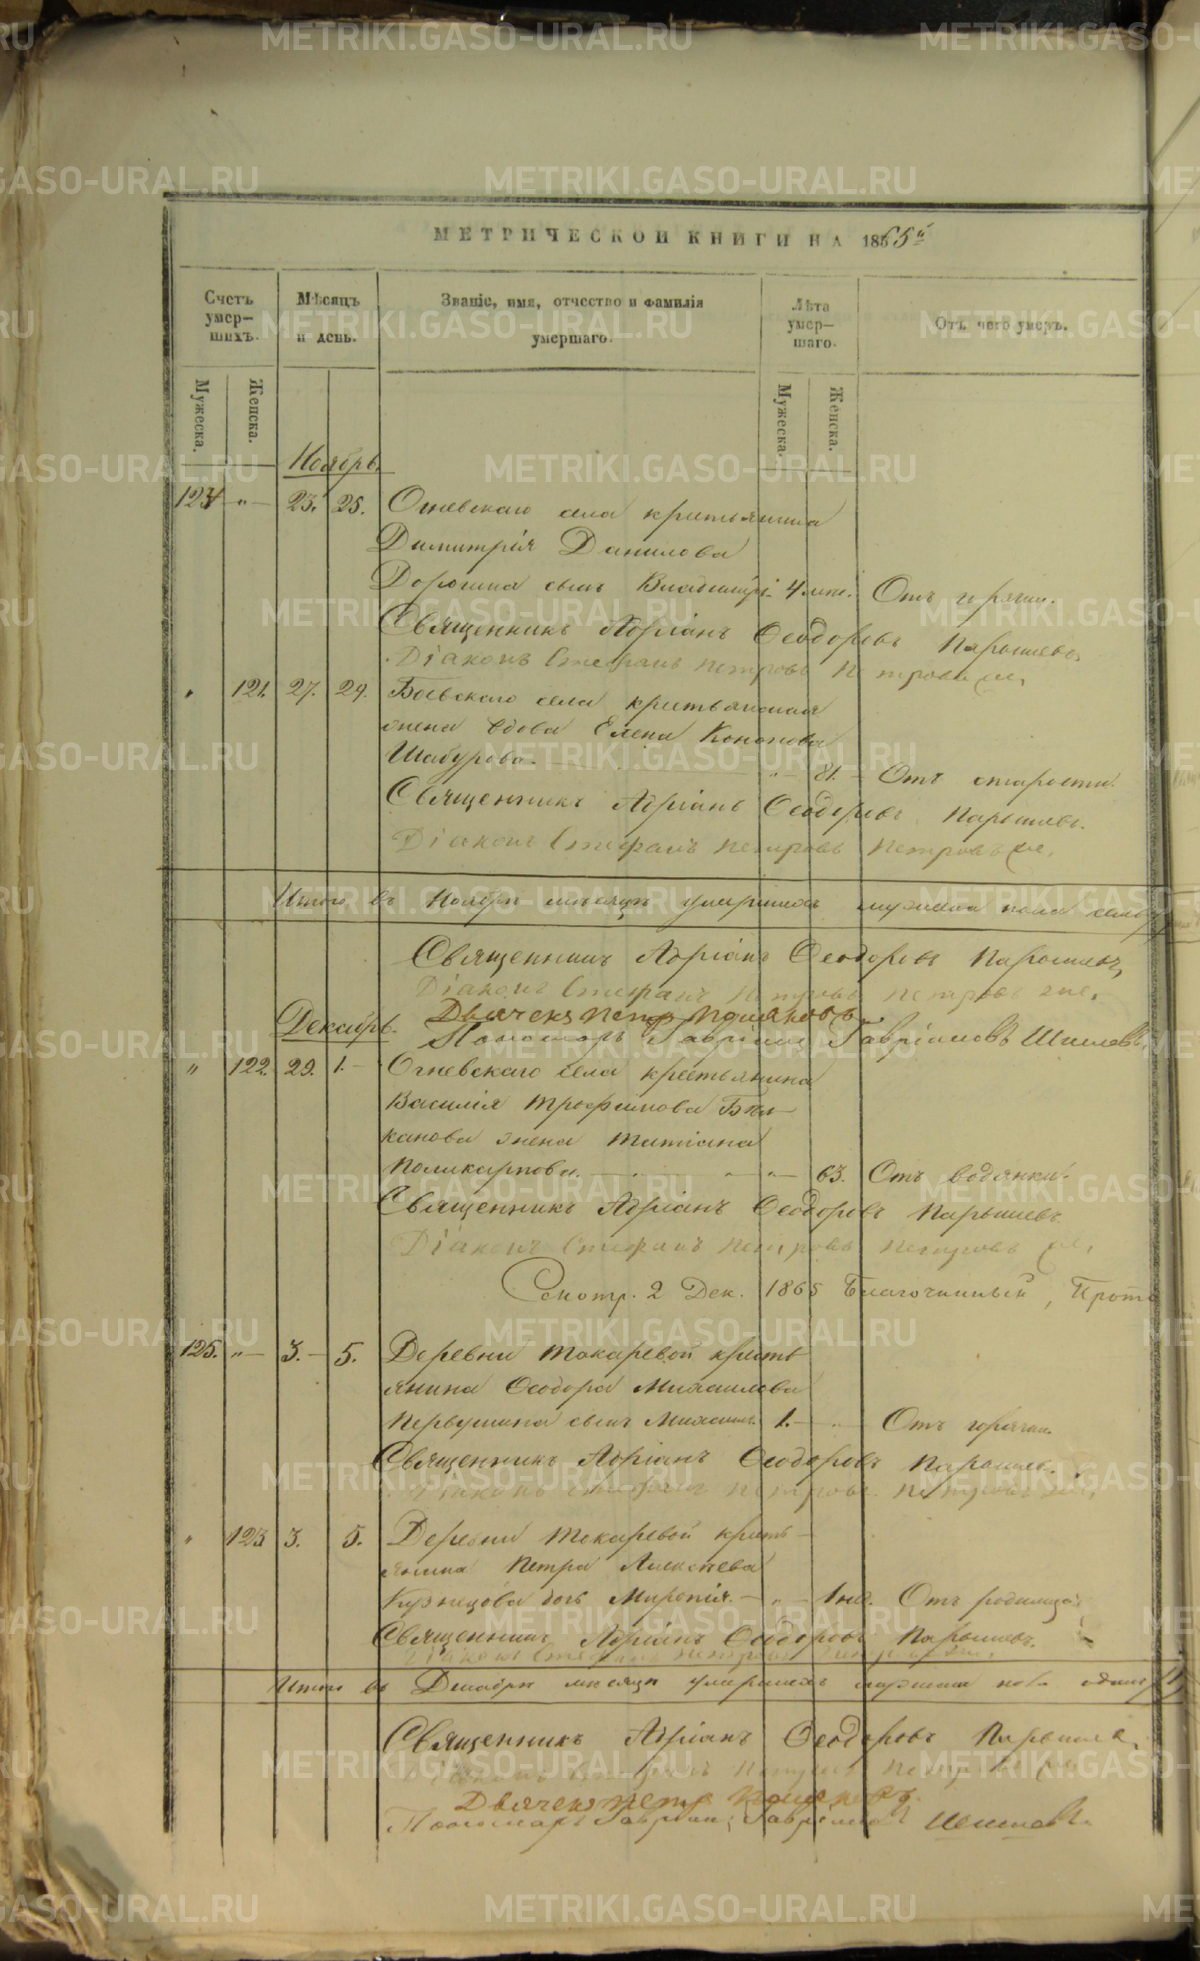 МЕТРИЧЕСКОЙ КНИГИ НА 1865й
Счетъ умер-шихъ.
Мѣсяцъ и день.
Званіе, имя, отчество и фамилія умершаго.
Лѣта умер-шаго.
Отъ чего умеръ.
Мужеска.
Женска.
Мужеска.
Женска.
Ноябрь.
124 „ 23. 25. Огневскаго села крестьянина
Димитрія Данилова
Дорогина сынъ Владиміръ 4 Отъ горячки.
Священникъ Адріанъ Ѳеодоровъ Парышевъ
Діаконъ Стефанъ Петровъ Петровыхъ
„ 121. 27. 29. Боевскаго села крестьянская
жена вдова Елена Кононова
Шабурова „ 81. Отъ старости.
Священникъ Адріанъ Ѳеодоровъ Парышевъ.
Діаконъ Стефанъ Петровъ
Итого въ Ноябрѣ мѣсяцѣ умершихъ мужеска пола семь
Священникъ Адріанъ Ѳеодоровъ Парышевъ,
Діаконъ Стефанъ Петровъ
Дьячекъ Петръ
Декабрь.
Пономарь Гавріилъ Гавріиловъ
„ 122. 29. 1. Огневскаго села крестьянина
Василія Трофимова
канова жена Татіана
Поликарпова. „ 63. Отъ водянки.
Священникъ Адріанъ Ѳеодоровъ Парышевъ
Діаконъ Стефанъ Петровъ
Смотр. 2 Дек. 1865 Благочинный, Прото
125. „ 3. 5. Деревни Токаревой кресть
янина Ѳеодора Михаилова
Первушина сынъ Михаилъ 1. Отъ горячки.
Священникъ Адріанъ Ѳеодоровъ Парышевъ.
Діаконъ Стефанъ Петровъ
„ 123 3. 5. Деревни Токаревой кресть-
янина Петра Алексѣева
Кузнецова дочь Миропія. „ 1 нед. Отъ родимца
Священникъ Адріанъ Ѳеодоровъ Парышевъ.
Діаконъ Стефанъ Петровъ
Итого въ Декабрѣ мѣсяцѣ умершихъ мужеска пола одинъ
Священникъ Адріанъ Ѳеодоровъ Парышевъ,
Діаконъ Стефанъ Петровъ
Дьячекъ Петръ
Пономарь Гавріилъ Гавріиловъ
METRIKI.GASO-URAL.RU